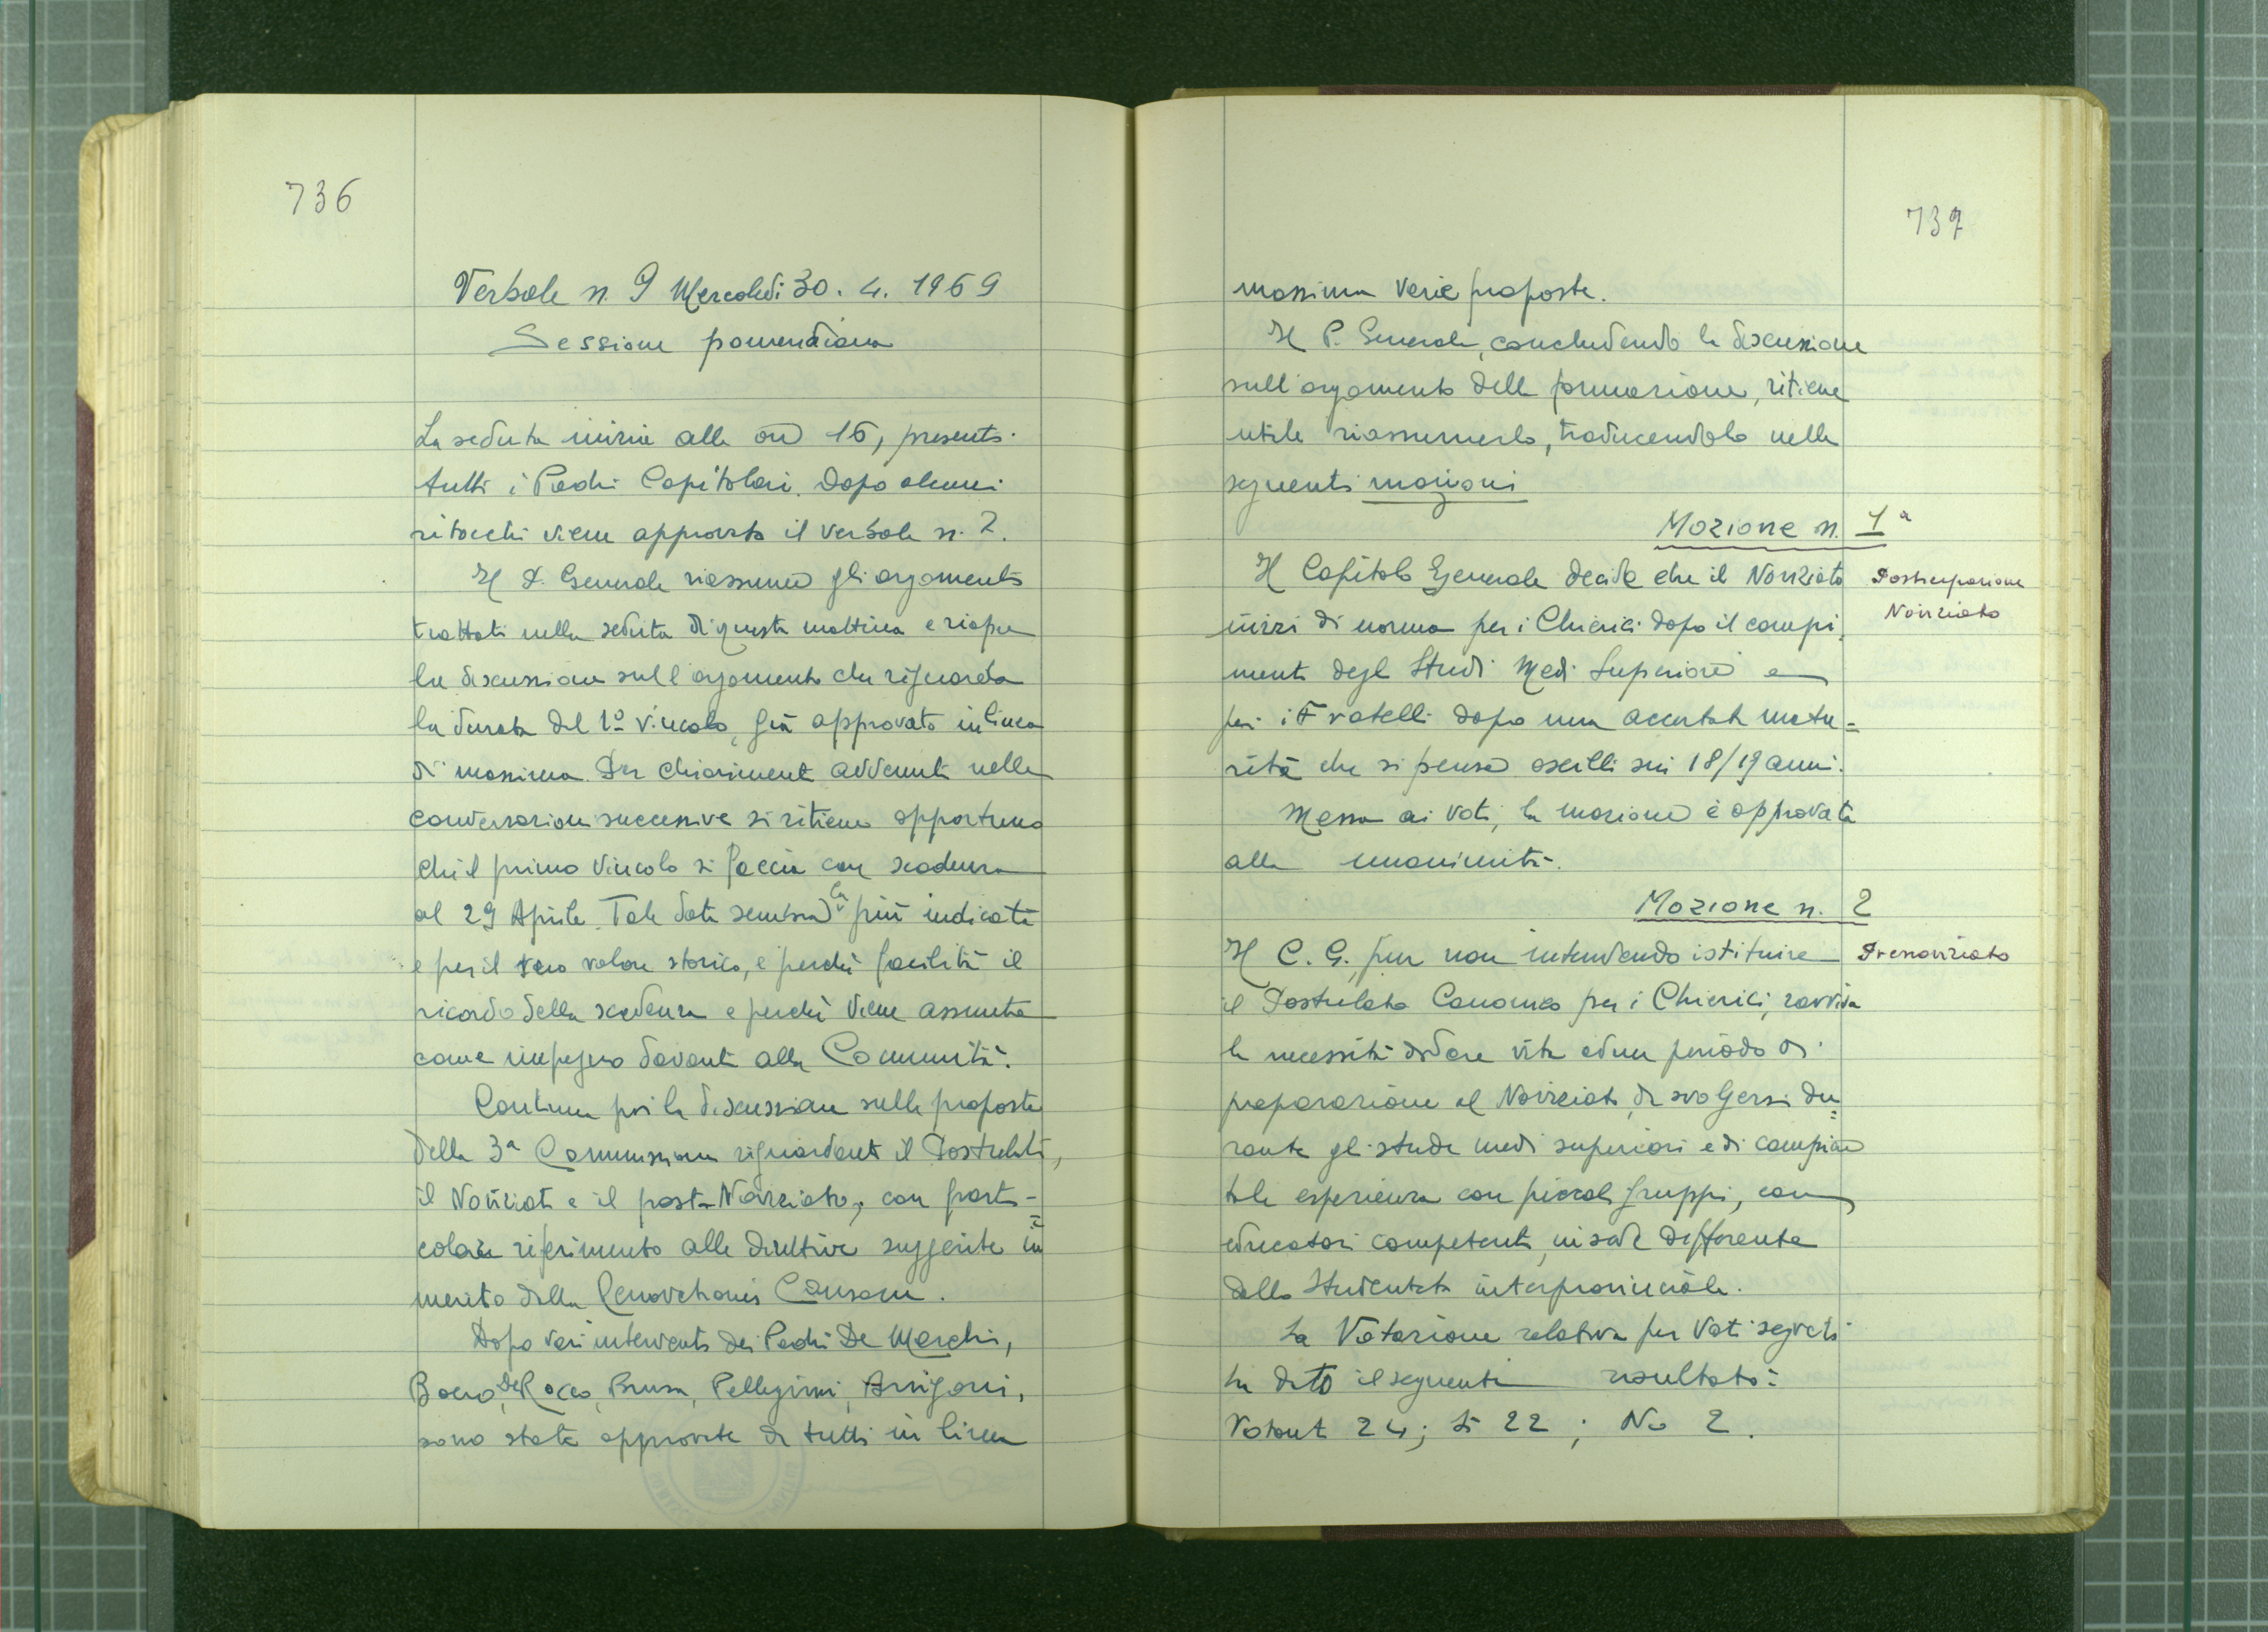 736
Verbale n. 9 Mercoledì 30. 4. 1969
Sessione pomeridiana
La seduta inizia alle ore 16, presenti
tutti i Padri Capitolari. Dopo alcuni
ritocchi viene approvato il verbale n. 7.
Il P. Generale riassume gli argomenti
trattati nella seduta di questa mattina e riapre
la discussione sull'argomento che riguarda
la durata del 1º vincolo, già approvato in linea
di massima. Per chiarimenti avvenuti nelle
conversazioni successive si ritiene opportuno
che il primo vincolo si faccia con scadenza
al 29 Aprile. Tale data sembra la più indicata
e per il suo valore storico, e perché facilita il
ricordo della scadenza e perché viene assunta
come impegno davanti alla Comunità.
Continua poi la discussione sulle proposte
della 3ª Commissione riguardanti il Postulato,
il Noviziato e il post-Noviziato, con parti-
colare riferimento alle direttive suggerite in
merito dalla Renovationis Causam.
Dopo vari interventi dei Padri De Marchi,
Boero, De Rocco, Brusa, Pellegrini, Arrigoni,
sono state approvate da tutti in linea
737
massima varie proposte.
Il P. Generale, concludendo la discussione
sull'argomento della formazione, ritiene
utile riassumerlo, traducendolo nelle
seguenti mozioni
Mozione n. 1ª
Il Capitolo Generale decide che il Noviziato
Posticipazione
Noviziato
inizi di norma per i Chierici dopo il compi-
mento degli Studi Medi Superiori e
per i Fratelli dopo una accertata matu=
rità che si pensa oscilli sui 18/19 anni.
Messa ai voti, la mozione è approvata
alla unanimità.
Mozione n. 2
Il C. G., pur non intendendo istituire
Prenoviziato
il Postulato Canonico per i Chierici, ravvisa
la necessità di dare vita ad un periodo di
preparazione al Noviziato, da svolgersi du=
rante gli studi medi superiori e di compiere
tale esperienza con piccoli gruppi, con
educatori competenti, in sede differente
dallo Studentato interprovinciale.
La Votazione relativa per Voti segreti
ha dato il seguente risultato:
Votanti 24; Sì 22; No 2.